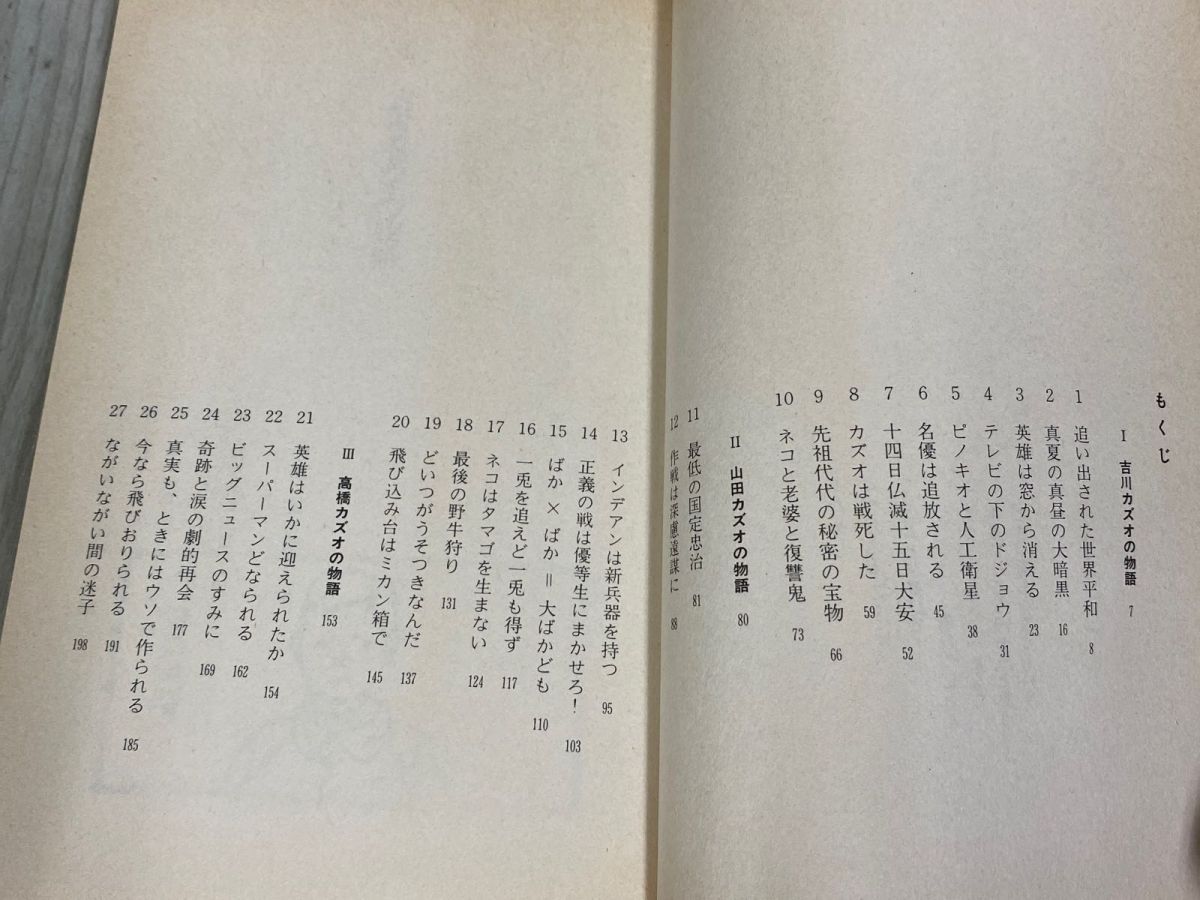 もくじ
Ⅰ 吉川カズオの物語 7
1 追い出された世界平和 8
2 真夏の真昼の大暗黒 16
3 英雄は窓から消える 23
4 テレビの下のドジョウ 31
5 ピノキオと人工衛星 38
6 名優は追放される 45
7 十四日仏滅十五日大安 52
8 カズオは戦死した 59
9 先祖代代の秘密の宝物 66
10 ネコと老婆と復讐鬼 73
Ⅱ 山田カズオの物語 80
11 最低の国定忠治 81
12 作戦は深慮遠謀に 88
13 インデアンは新兵器を持つ 95
14 正義の戦は優等生にまかせろ! 103
15 ばか×ばか=大ばかども 110
16 一兎を追えど一兎も得ず 117
17 ネコはタマゴを生まない 124
18 最後の野牛狩り 131
19 どいつがうそつきなんだ 137
20 飛び込み台はミカン箱で 145
Ⅲ 高橋カズオの物語 153
21 英雄はいかに迎えられたか 154
22 スーパーマンどなられる 162
23 ビッグニュースのすみに 169
24 奇跡と涙の劇的再会 177
25 真実も、ときにはウソで作られる 185
26 今なら飛びおりられる 191
27 ながいながい間の迷子 198